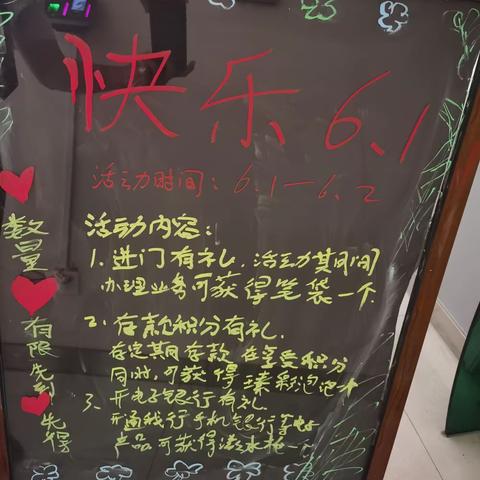 快乐6.1
活动时间：6.1—6.2
活动内容：
1、进门有礼，活动其间
办理业务可获得笔袋一个
2、存款积分有礼.
存定期存款 在享受积分
同时，可获得臻彩泡泡一个
3、开电子银行有礼
开通我行手机银行等电子
产品可获得浇水枪一个
数量有限先到先得